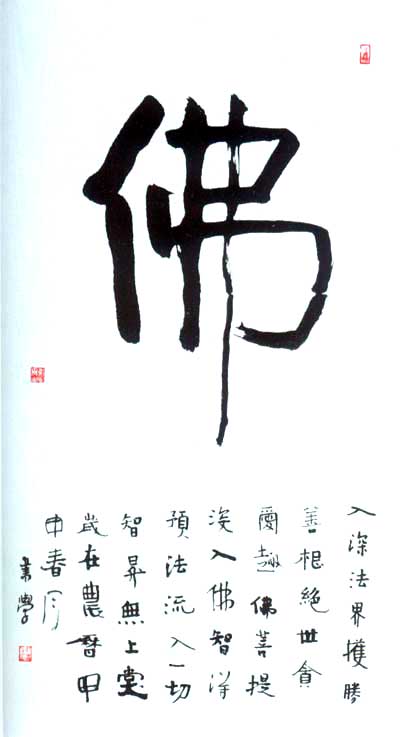 佛
入深法界獲勝
善根絕世貪
愛趣佛菩提
深入佛智得
預法流入一切
智昇無上堂
歲在農曆甲
申春月
學